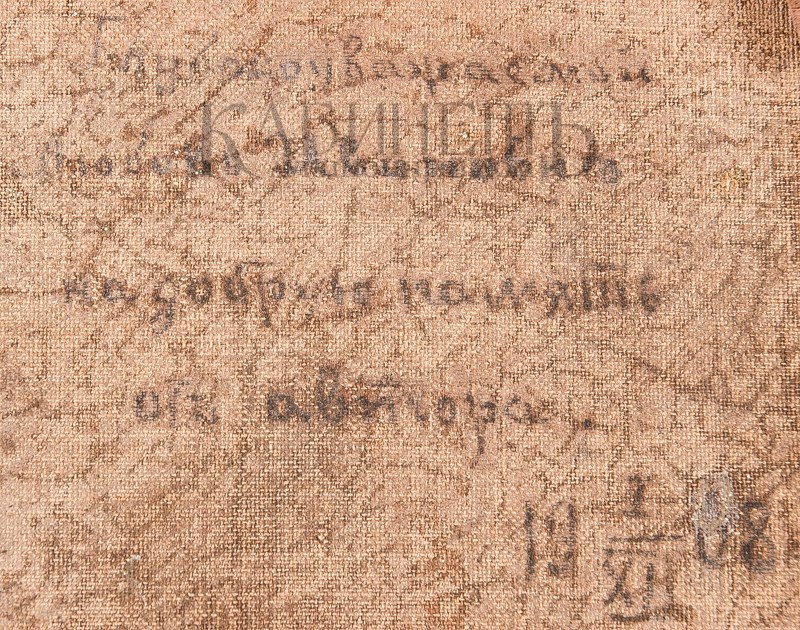 Глубокоуважаемой
КАБИНЕТЪ
на добрую память
отъ автора.
19 I/XII 08